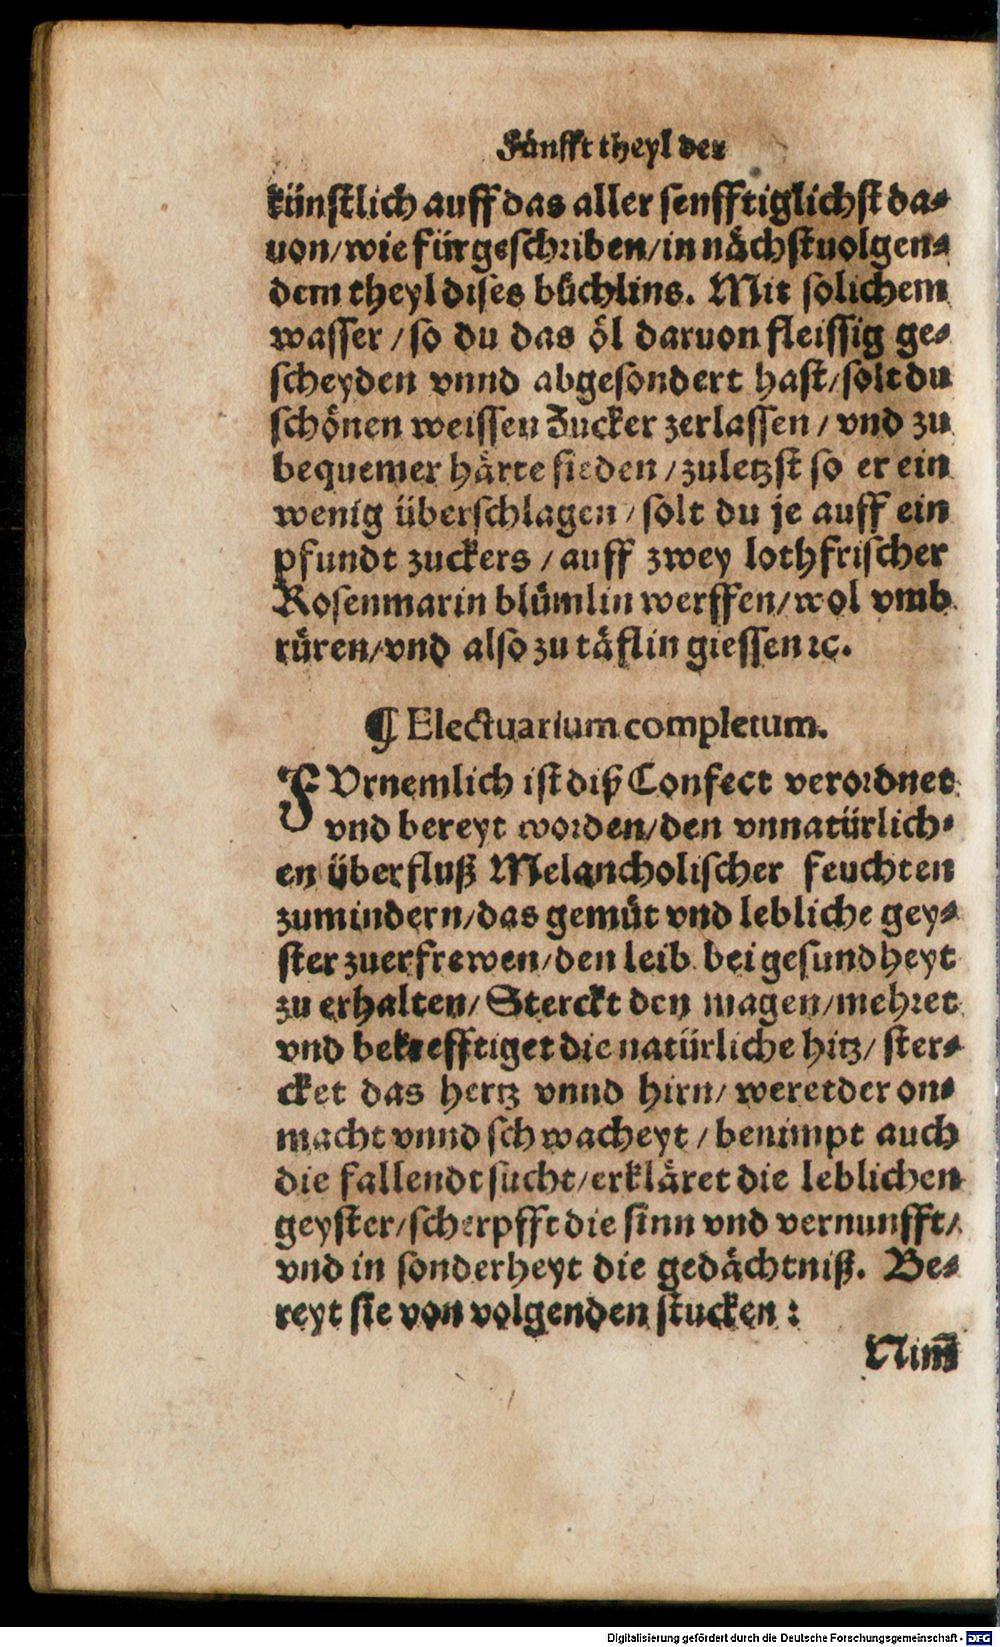 Fünfft theyl der
künstlich auff das aller senfftiglichst da⸗
uon/wie fürgeschriben/in nächstuolgen⸗
dem theyl dises büchlins. Mit solichem
wasser/so du das öl daruon fleissig ge⸗
scheyden vnnd abgesondert hast/solt du
schönen weissen Zucker zerlassen/vnd zu
bequemer härte sieden/zuletzst so er ein
wenig überschlagen/solt du je auff ein
pfundt zuckers/auff zwey loth frischer
Rosenmarin blümlin werffen/wol vmb
rüren/vnd also zu täflin giessen ꝛc.
¶ Electuarium completum.
FVrnemlich ist diß Confect verordnet
vnd bereyt worden/den vnnatürlich⸗
en überfluß Melancholischer feuchten
zumindern/das gemüt vnd lebliche gey⸗
ster zuerfrewen/den leib bei gesundheyt
zu erhalten/Sterckt den magen/mehret
vnd bekrefftiget die natürliche hitz/ster⸗
cket das hertz vnnd hirn/weret der on⸗
macht vnnd schwacheyt/benimpt auch
die fallendt sucht/erkläret die leblichen
geyster/scherpfft die sinn vnd vernunfft/
vnd in sonderheyt die gedächtniß. Be⸗
reyt sie von volgenden stucken:
Nim̃
Digitalisierung gefördert durch die Deutsche Forschungsgemeinschaft - DFG